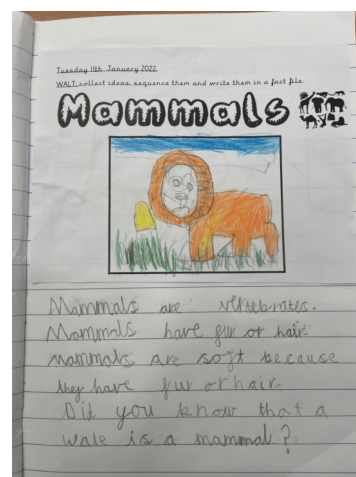 Tuesday 11th January 2022
WALT: collect ideas, sequence them and write them in a fact file.
Mammals
Mammals are vertebrates.
Mammals have fur or hair
mammals are soft because
they have fur or hair.
Did you know that a
wale is a mammal?